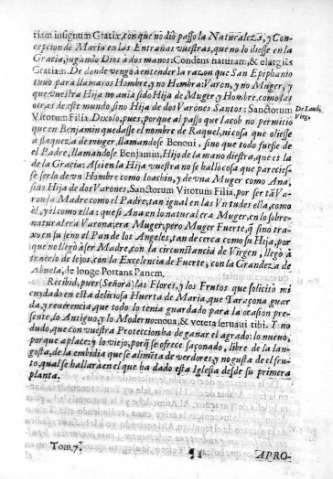 tiam insignum Gratiæ, con que no diò passo la Naturaleza, y Con-
cepcion de Maria en las Entrañas vuestras, que no lo diesse en la
Gracia, jugando Dios a dos manos: Condens naturam, & elargiẽs
Gratiam. De donde vengo à entender la razon que San Epiphanio
tuvo para llamaros Hombre, y no Hombra: Varon, y no Muger, y
que vuestra Hija Maria sido Hija de Muger y Hombre, como las
otras de este mundo, sino Hija de dos Varones Santos: Sanctorum
De Laud. Virg.
Virorum Filia. Dixolo, pues, porque al passo que Iacob no permitiò
que en Benjamin quedasse el nombre de Raquel, ni cosa que oliesse
a flaqueza de muger, llamandose Benoni, sino que todo fuesse de
el Padre, llamandose Benjamin, Hijo de la mano diestra, que es la
de la Gracia: Assi en la Hija vuestra no se hallò cosa que pareciesse
serlo de vn Hombre como Ioachin, y de vna Muger como Ana,
sino Hija de dos Varones, Sanctorum Virorum Filia, por ser tã Va-
ronil la Madre como el Padre, tan igual en las Virtudes ella, como
èl, y èl como ella: que si Ana en lo natural era Muger, en lo sobre-
natural era Varona; era Muger, pero Muger Fuerte, q̃ sino tra-
xo en su seno el Pan de los Angeles, tan de cerca como su Hija, por
que no llegò à ser Madre, con la circunstancia de Virgen, llegò à
traerlo de lejos, con la Excelencia de Fuerte, con la Grandeza de
Abuela, de longe Portans Panem.
Recibid, pues (Señora) las Flores, y los Frutos que solicitò mi
cuydado en esta deliciosa Huerta de Maria, que Taragona guar-
da, y reverencia, que todo lo tenia guardado para la ocasion pre-
sente, lo Antiguo, y lo Moderno: noua, & vetera seruaui tibi. Y no
dudo, que con vuestra Proteccion ha de ganar el agrado: lo nuevo,
porque aplaze; y lo viejo, porq̃ se ofrece saçonado, libre de la lan-
gosta, de la embidia que se alimẽta de verdores, y no gusta de el fru-
to, qual se hallarà en el que ha dado esta Iglesia desde su primera
planta.
Tom. 7.
¶ 2
APRO-